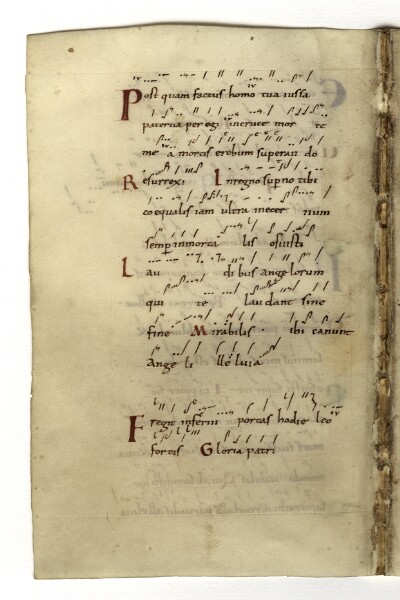 Post quam factus homo tua iussa
paterna peregi incruce mor te
me a mortis erebum superan do
Resurrexi In regno superno tibi
coequalis iam ultra in eter num
semp inmorta lis Posuisti
Lau dibus angelorum
qui te laudant sine
fine Mirabilis . ibi canunt
ange li lle luia
Fregit inferni portas hodie leo
fortis Gloria patri